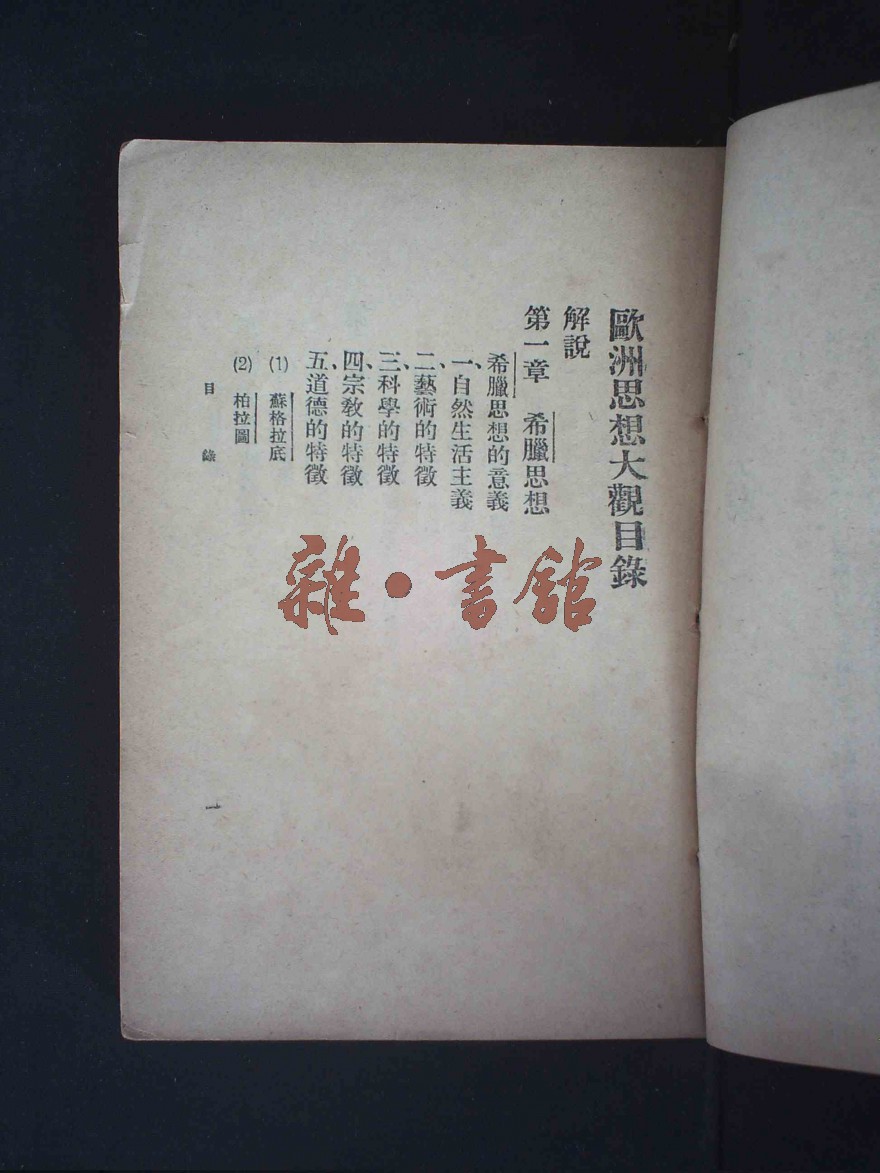 歐洲思想大觀目錄
解說
第一章 希臘思想
希臘思想的意義
一、自然生活主義
二、藝術的特徵
三、科學的特徵
四、宗教的特徵
五、道德的特徵
(1) 蘇格拉底
(2) 柏拉圖
目錄
一
雜·書館